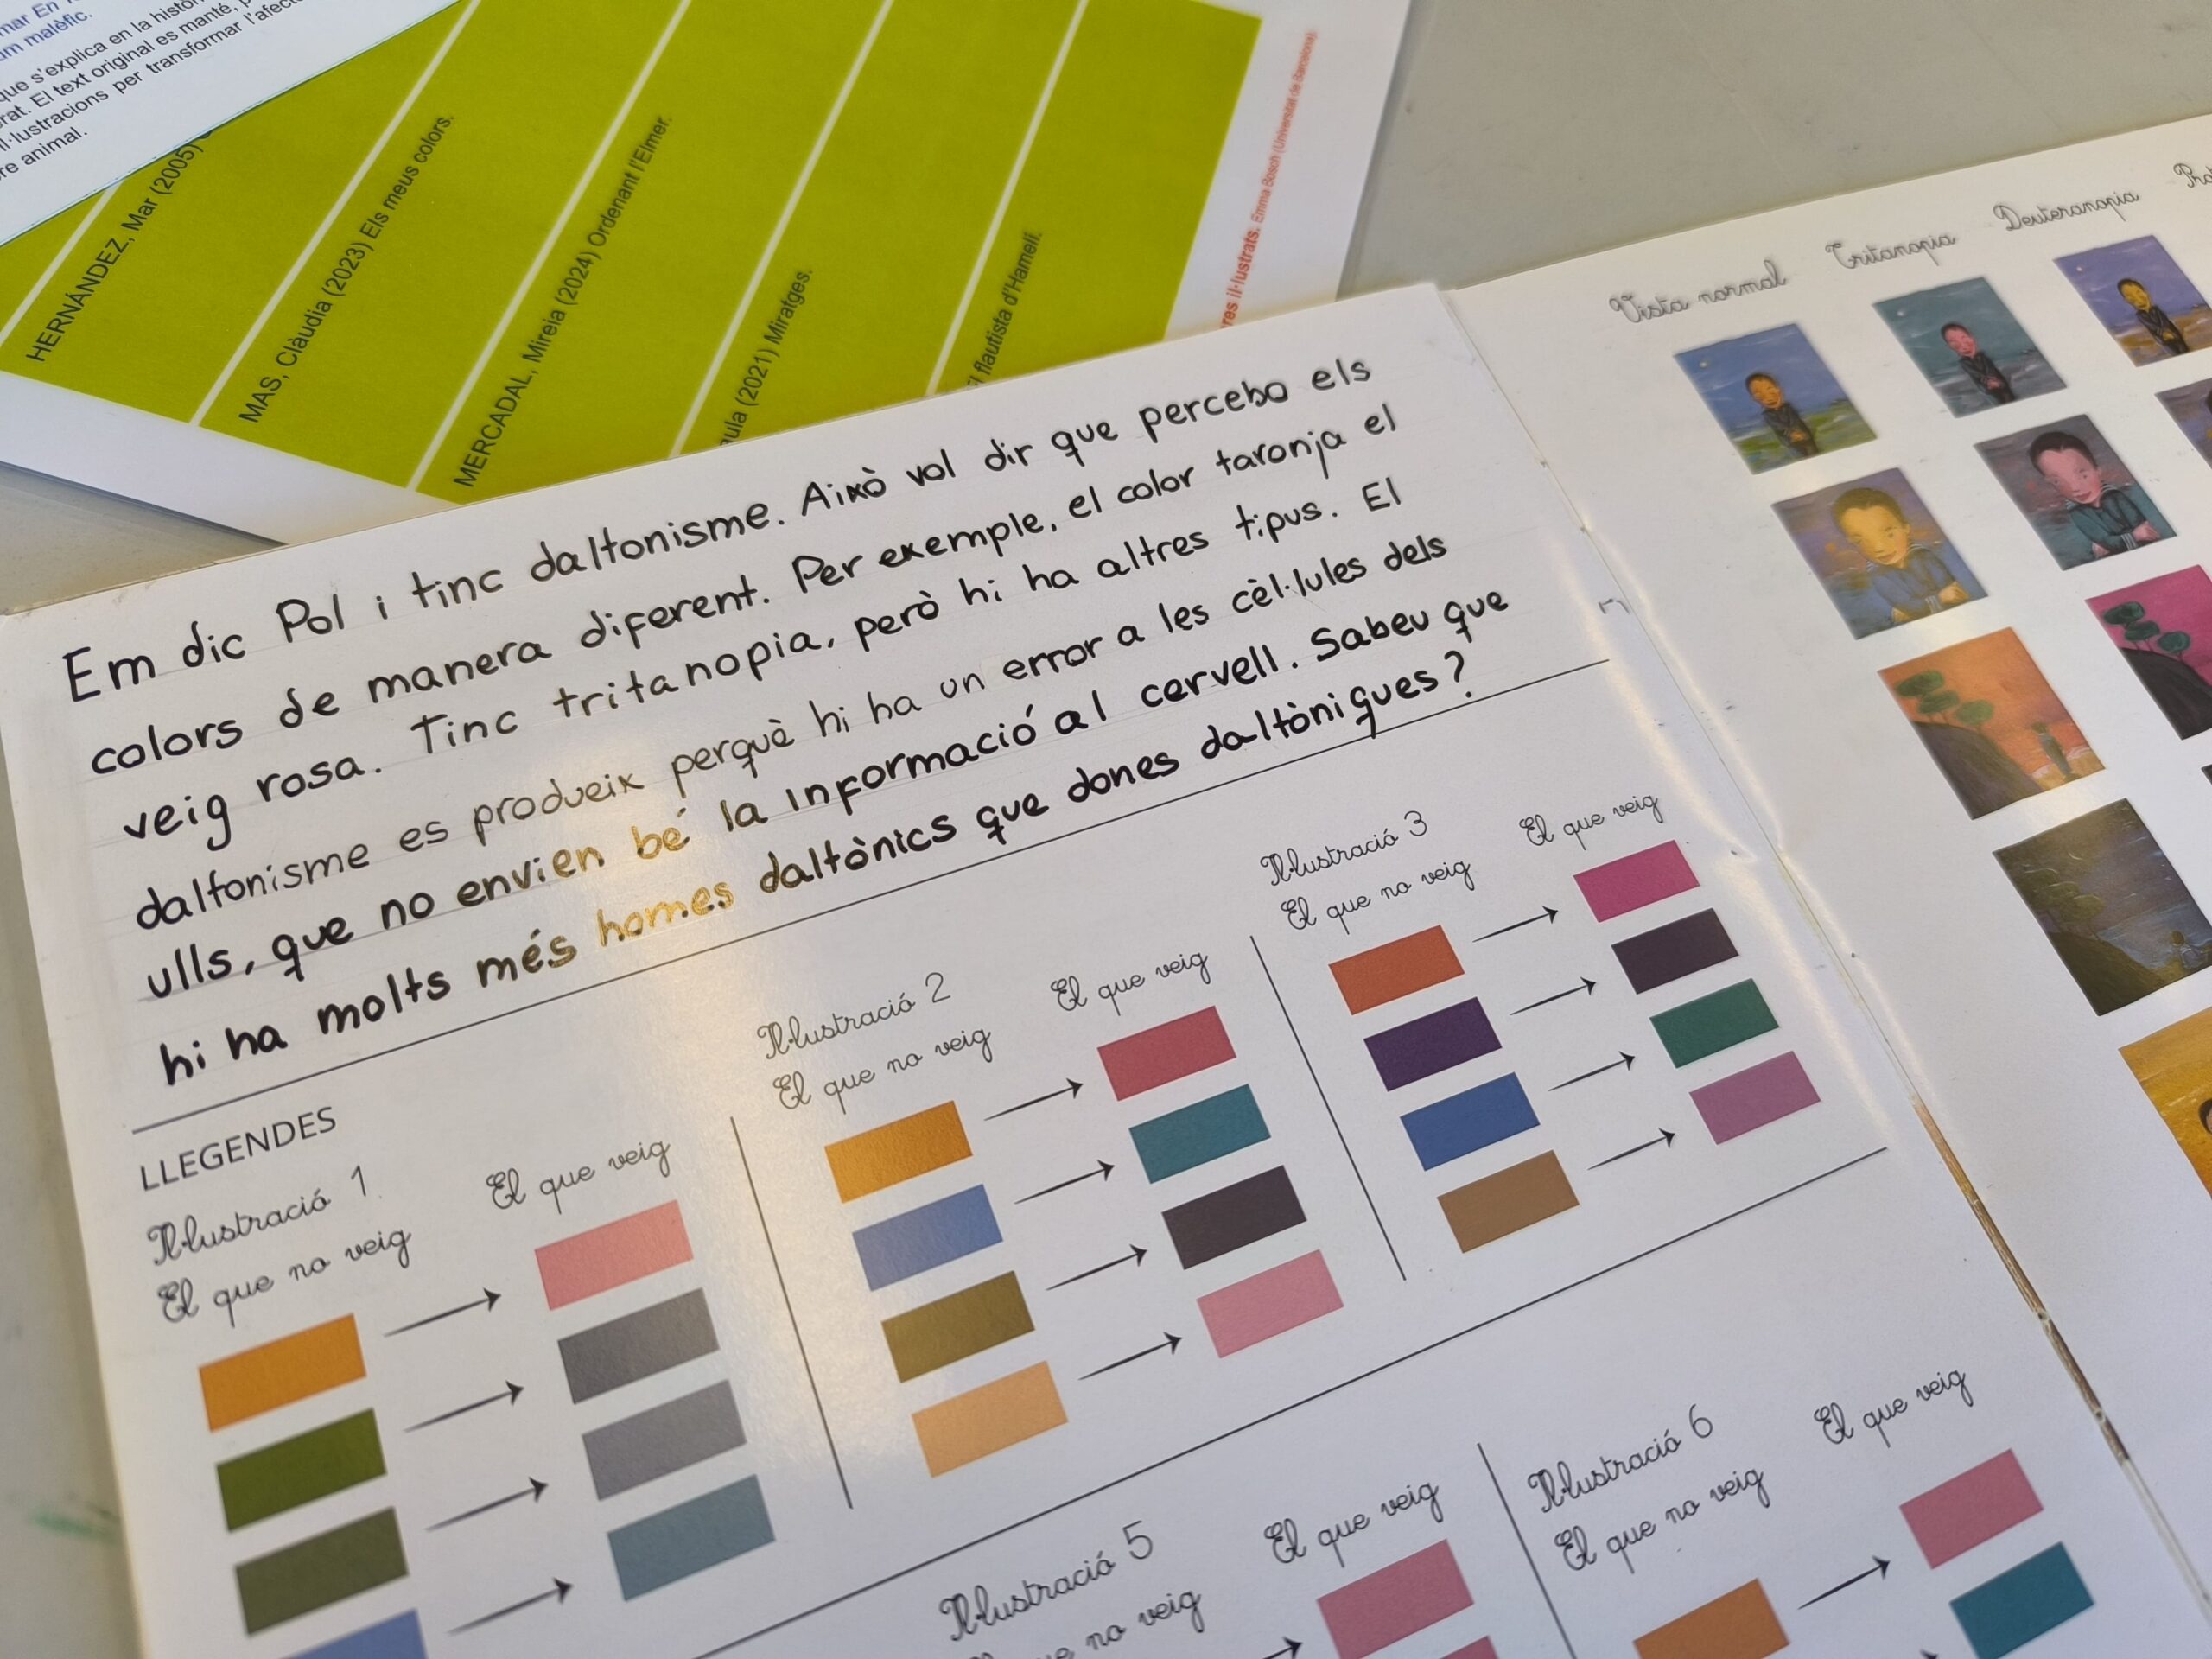 mar En
m malèfic.
que s'explica en la
rat. El text original es manté,
il·lustracions per transformar l'afect
re animal.
HERNÁNDEZ, Mar (2005)
MAS, Clàudia (2023) Els meus colors.
MERCADAL, Mireia (2024) Ordenant l'Elmer.
aula (2021) Miratges.
El flautista d'Hamelí.
res il·lustrats. Emma Bosch (Universitat de Barcelona)
Em dic Pol i tinc daltonisme. Això vol dir que percebo els
colors de manera diferent. Per exemple, el color taronja el
veig rosa. Tinc tritanopia, però hi ha altres tipus. El
daltonisme es produeix perquè hi ha un error a les cèl·lules dels
ulls, que no envien bé la informació al cervell. Sabeu que
hi ha molts més homes daltònics que dones daltòniques?
LLEGENDES
Il·lustració 1.
El que no veig
El que veig
Il·lustració 2
El que no veig
El que veig
Il·lustració 3
El que no veig
El que veig
Il·lustració 5
que no veig
El que veig
Il·lustració 6
El que no veig
El que veig
Vista normal
Tritanopia
Deuteranopia